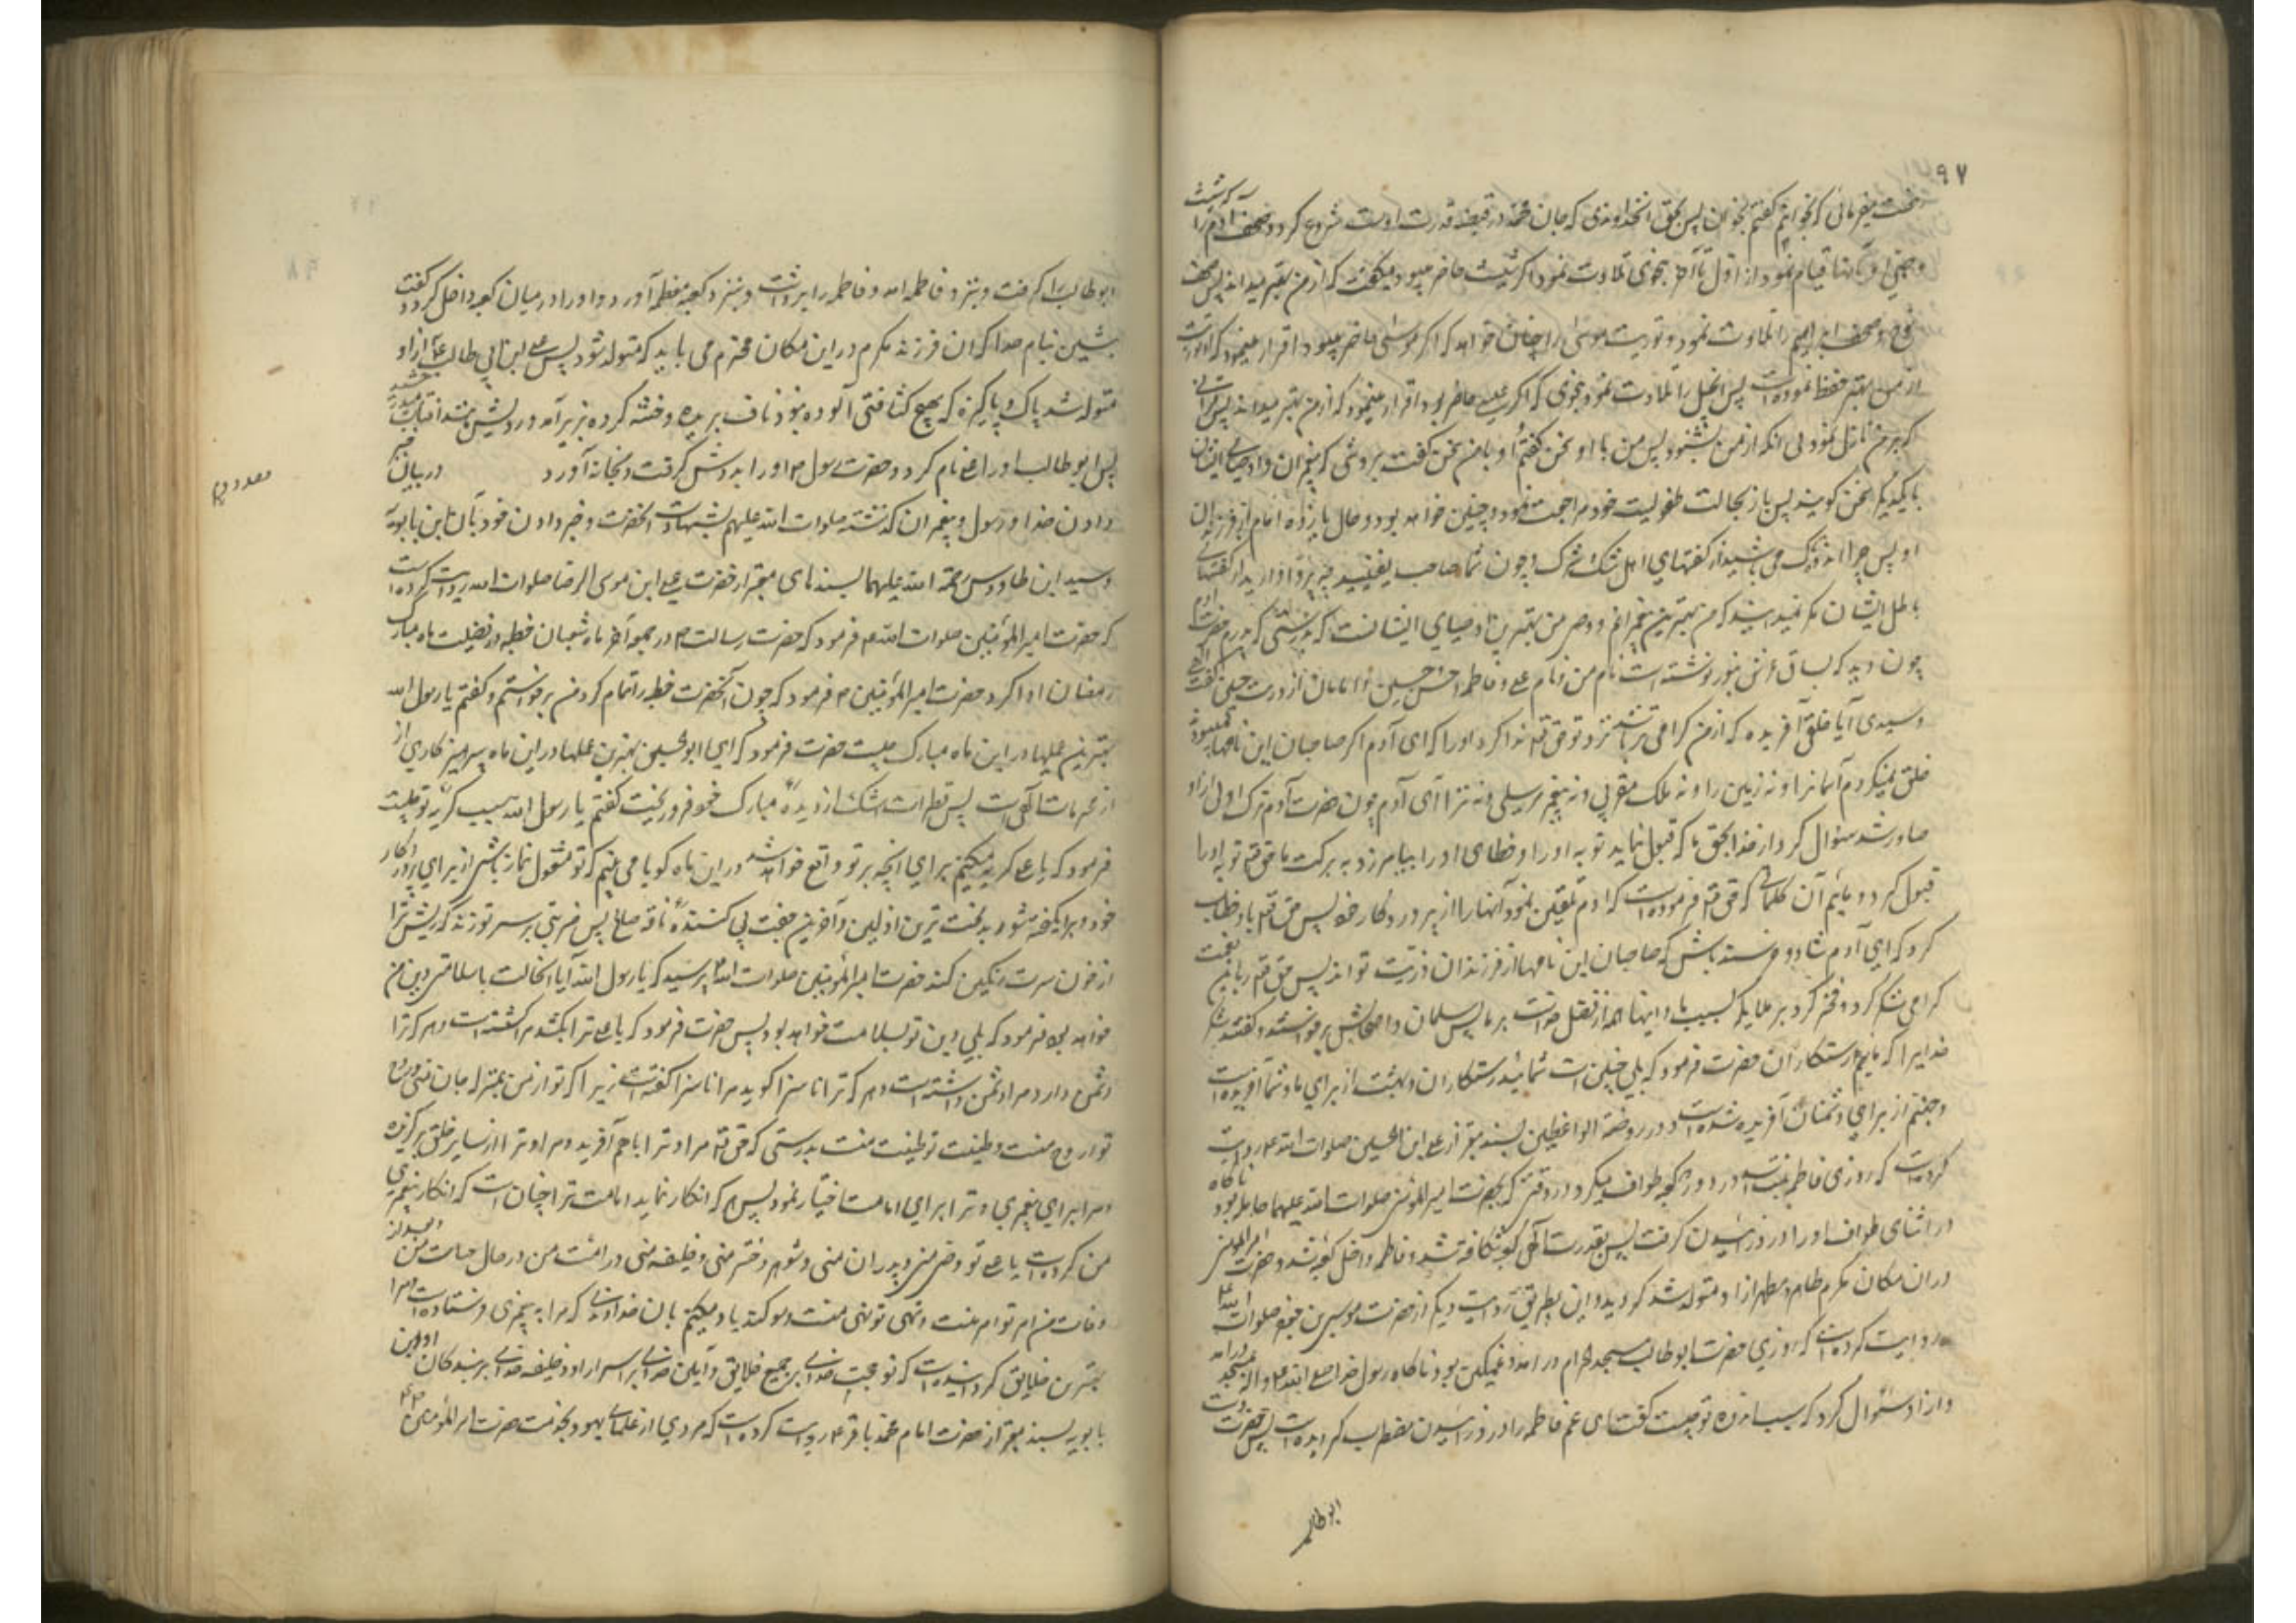 ۹۷
رخصت میفرمائی که بخوانم گفتم بخوان پس بحق انخداوندی که جان محمد در قبضه قدرت اوست شروع کرد و صحف آدم را که شیث
و بعد از او بآنها قیام نمود از اول تا آخر بنحوی تلاوت نمود اگر شیث حاضر میبود میگفت که از من بهتر میداند پس صحف
نوح و صحف ابراهیم را تلاوت نمود و توریت موسی را چنان خواند که اگر موسی حاضر میبود اقرار مینمود که او توریت را
از من بهتر حفظ نموده است پس انجیل را تلاوت نمود بنحوی که اگر عیسی حاضر بود اقرار مینمود که از من بهتر میداند پس قرآنی
که بر من نازل نمود بی انکه از من بشنود پس من با او سخن گفتم و او با من سخن گفت بروشی که پیغمبران و اوصیای ایشان
با یکدیگر سخن کویند پس باز بحالت طفولیت خود مراجعت نمود و چنین خواهد بود و حال یازده امام از فرزندان
او پس چرا اندوهناک می باشید از گفتهای اهل شک و شرک و چون شما صاحب یقینید چه پروا دارید از گفتهای
باطل ایشان مگر نمیدانید که من بهترین پیغمبرانم و وصی من بهترین اوصیای ایشانست که بدرستی که پدرم حضرت آدم
چون دید که بساق عرش بنور نوشته است نام من و نام علی و فاطمه و حسن و حسین و امامان از ذریت حسین گفت الهی
و سیدی آیا خلقی آفریده که از من کرامی تر باشد نزد تو حق تع ندا کرد او را که ای آدم اگر صاحبان این نامها نمیبودند
خلق نمیکردم آسمانرا و نه زمین را و نه ملک مقربی و نه پیغمبر مرسلی و نه ترا ای آدم چون حضرت آدم ترک اولی از او
صادر شد سئوال کرد از خدا بحق ما که قبول نماید توبه او را و خطای او را بیامرزد به برکت ما حق تع توبه او را
قبول کرد و مائیم آن کلماتی که حق تع فرموده است که آدم تلقین نمود آنها را از پروردگار خود پس حق تع باو خطاب
کرد که ای آدم شاد و خرسند باش که صاحبان این نامها از فرزندان و ذریت تواند پس حق تع را باین نعمت
کرامی شکر کرد و فخر کرد بر ملایکه بسبب ما و اینها همه از فضل خداست بر ما پس سلمان و اصحابش برخواستند و گفتند شکر
خدایرا که مائیم رستکاران حضرت فرمود که بلی چنین است شمائید رستکاران و بهشت از برای ما و شما آفریده است
و جهنم از برای دشمنان آفریده شده است و در روضة الواعظین بسند معتبر از علی ابن الحسین صلوات الله علیه روایت
کرده است که روزی فاطمه بنت اسد در دور کعبه طواف میکرد در وقتی که بحضرت امیرالمؤمنین صلوات الله علیهما حامله بود ناکاه
در اثنای طواف او را درد زائیدن کرفت پس بقدرت آلهی کعبه شکافته شد و فاطمه داخل کعبه شد و حضرت امیرالمؤمنین
در ان مکان مکرم طاهر و مطهر از او متولد شد کردید و این بطریق روایت دیگر از حضرت موسی بن جعفر صلوات الله علیه
روایت کرده است که روزی حضرت ابوطالب بمسجد الحرام در امد و غمکین بود ناکاه رسول خدا صلی الله علیه واله بمسجد درآمد
و از او سئوال کرد که سبب اندوه تو چیست گفت ای عم فاطمه را درد زائیدن مضطرب کردیده است پس حضرت دست
ابوطالب
ابوطالب را کرفت و بنزد فاطمه امد و فاطمه را برداشت و بنزد کعبه معظمه آورد و او را در میان کعبه داخل کرد و گفت
بنشین بنام خدا که ان فرزند مکرم در این مکان محترم می باید که متولد شود پس علی ابن ابی طالب ع از او
متولد شد پاک و پاکیزه که بهیچ کثافتی آلوده نبود ناف بریده و ختنه کرده بزیر آمد و رویش مانند آفتاب میدرخشید
پس ابوطالب او را علی نام کرد و حضرت رسول ص او را بدوش گرفت و بخانه آورد در بیان خبر
دادن خدا و رسول و پیغمبران گذشته صلوات الله علیهم بشهادت انحضرت و خبر دادن خود بآن ابن بابویه
و سید ابن طاووس رحمة الله علیهما بسندهای معتبر از حضرت علی ابن موسی الرضا صلوات الله علیه روایت کرده است
که حضرت امیرالمؤمنین صلوات الله علیه فرمود که حضرت رسالت ص در جمعه آخر ماه شعبان خطبه در فضیلت ماه مبارک
رمضان ادا کرد حضرت امیرالمؤمنین ع فرمود که چون آنحضرت خطبه را تمام کرد من برخواستم و گفتم یا رسول الله
بهترین عملها در این ماه مبارک چیست حضرت فرمود که ای ابوالحسن بهترین عملها در این ماه پرهیزکاری از
از محرمات الهی است پس قطرات اشک از دیدهٔ مبارک خود فرو ریخت گفتم یا رسول الله سبب گریه تو چیست
فرمود که یا علی گریه میکنم برای انچه بر تو واقع خواهد شد در این ماه گویا می بینم که تو مشغول نماز باشی از برای پروردگار
خود و برانگیخته شود بدبخت ترین اولین و آخرین جفت پی کنندهٔ ناقه صالح پس ضربتی بر سر تو زند که ریش ترا
از خون سرت رنگین کند حضرت امیرالمؤمنین صلوات الله علیه پرسید که یا رسول الله آیا انحالت با سلامتی دین من
خواهد بود فرمود که بلی دین تو بسلامت خواهد بود پس حضرت فرمود که یا علی هر که ترا بکشد مرا کشته است و هر که ترا
دشمن دارد مرا دشمن داشته است و هر که ترا ناسزا گوید مرا ناسزا گفته است زیرا که تو از من بمنزله جان منی و روح
تو از روح منست و طینت تو طینت منست بدرستی که حق تع مرا و ترا باهم آفرید و مرا و ترا از سایر خلق برگزیده
و مرا برای پیغمبری و ترا برای امامت اختیار نمود پس هر که انکار نماید امامت ترا چنان است که انکار پیغمبری
من کرده است یا علی تو وصی منی و پدر فرزندان منی و شوهر دختر منی و خلیفه منی در امت من در حال حیات من و بعد از
وفات من امر تو امر منست و نهی تو نهی منست و سوگند یاد میکنم بان خداوندی که مرا به پیغمبری فرستاده است و مرا
بهترین خلایق گردانیده است که تو حجت خدائی بر جمیع خلایق و امین خدائی بر اسرار او و خلیفه خدائی بر بندگان او و ابن
بابویه بسند معتبر از حضرت امام محمد باقر ع روایت کرده است که مردی از علمای یهود بخدمت حضرت امیرالمؤمنین ع